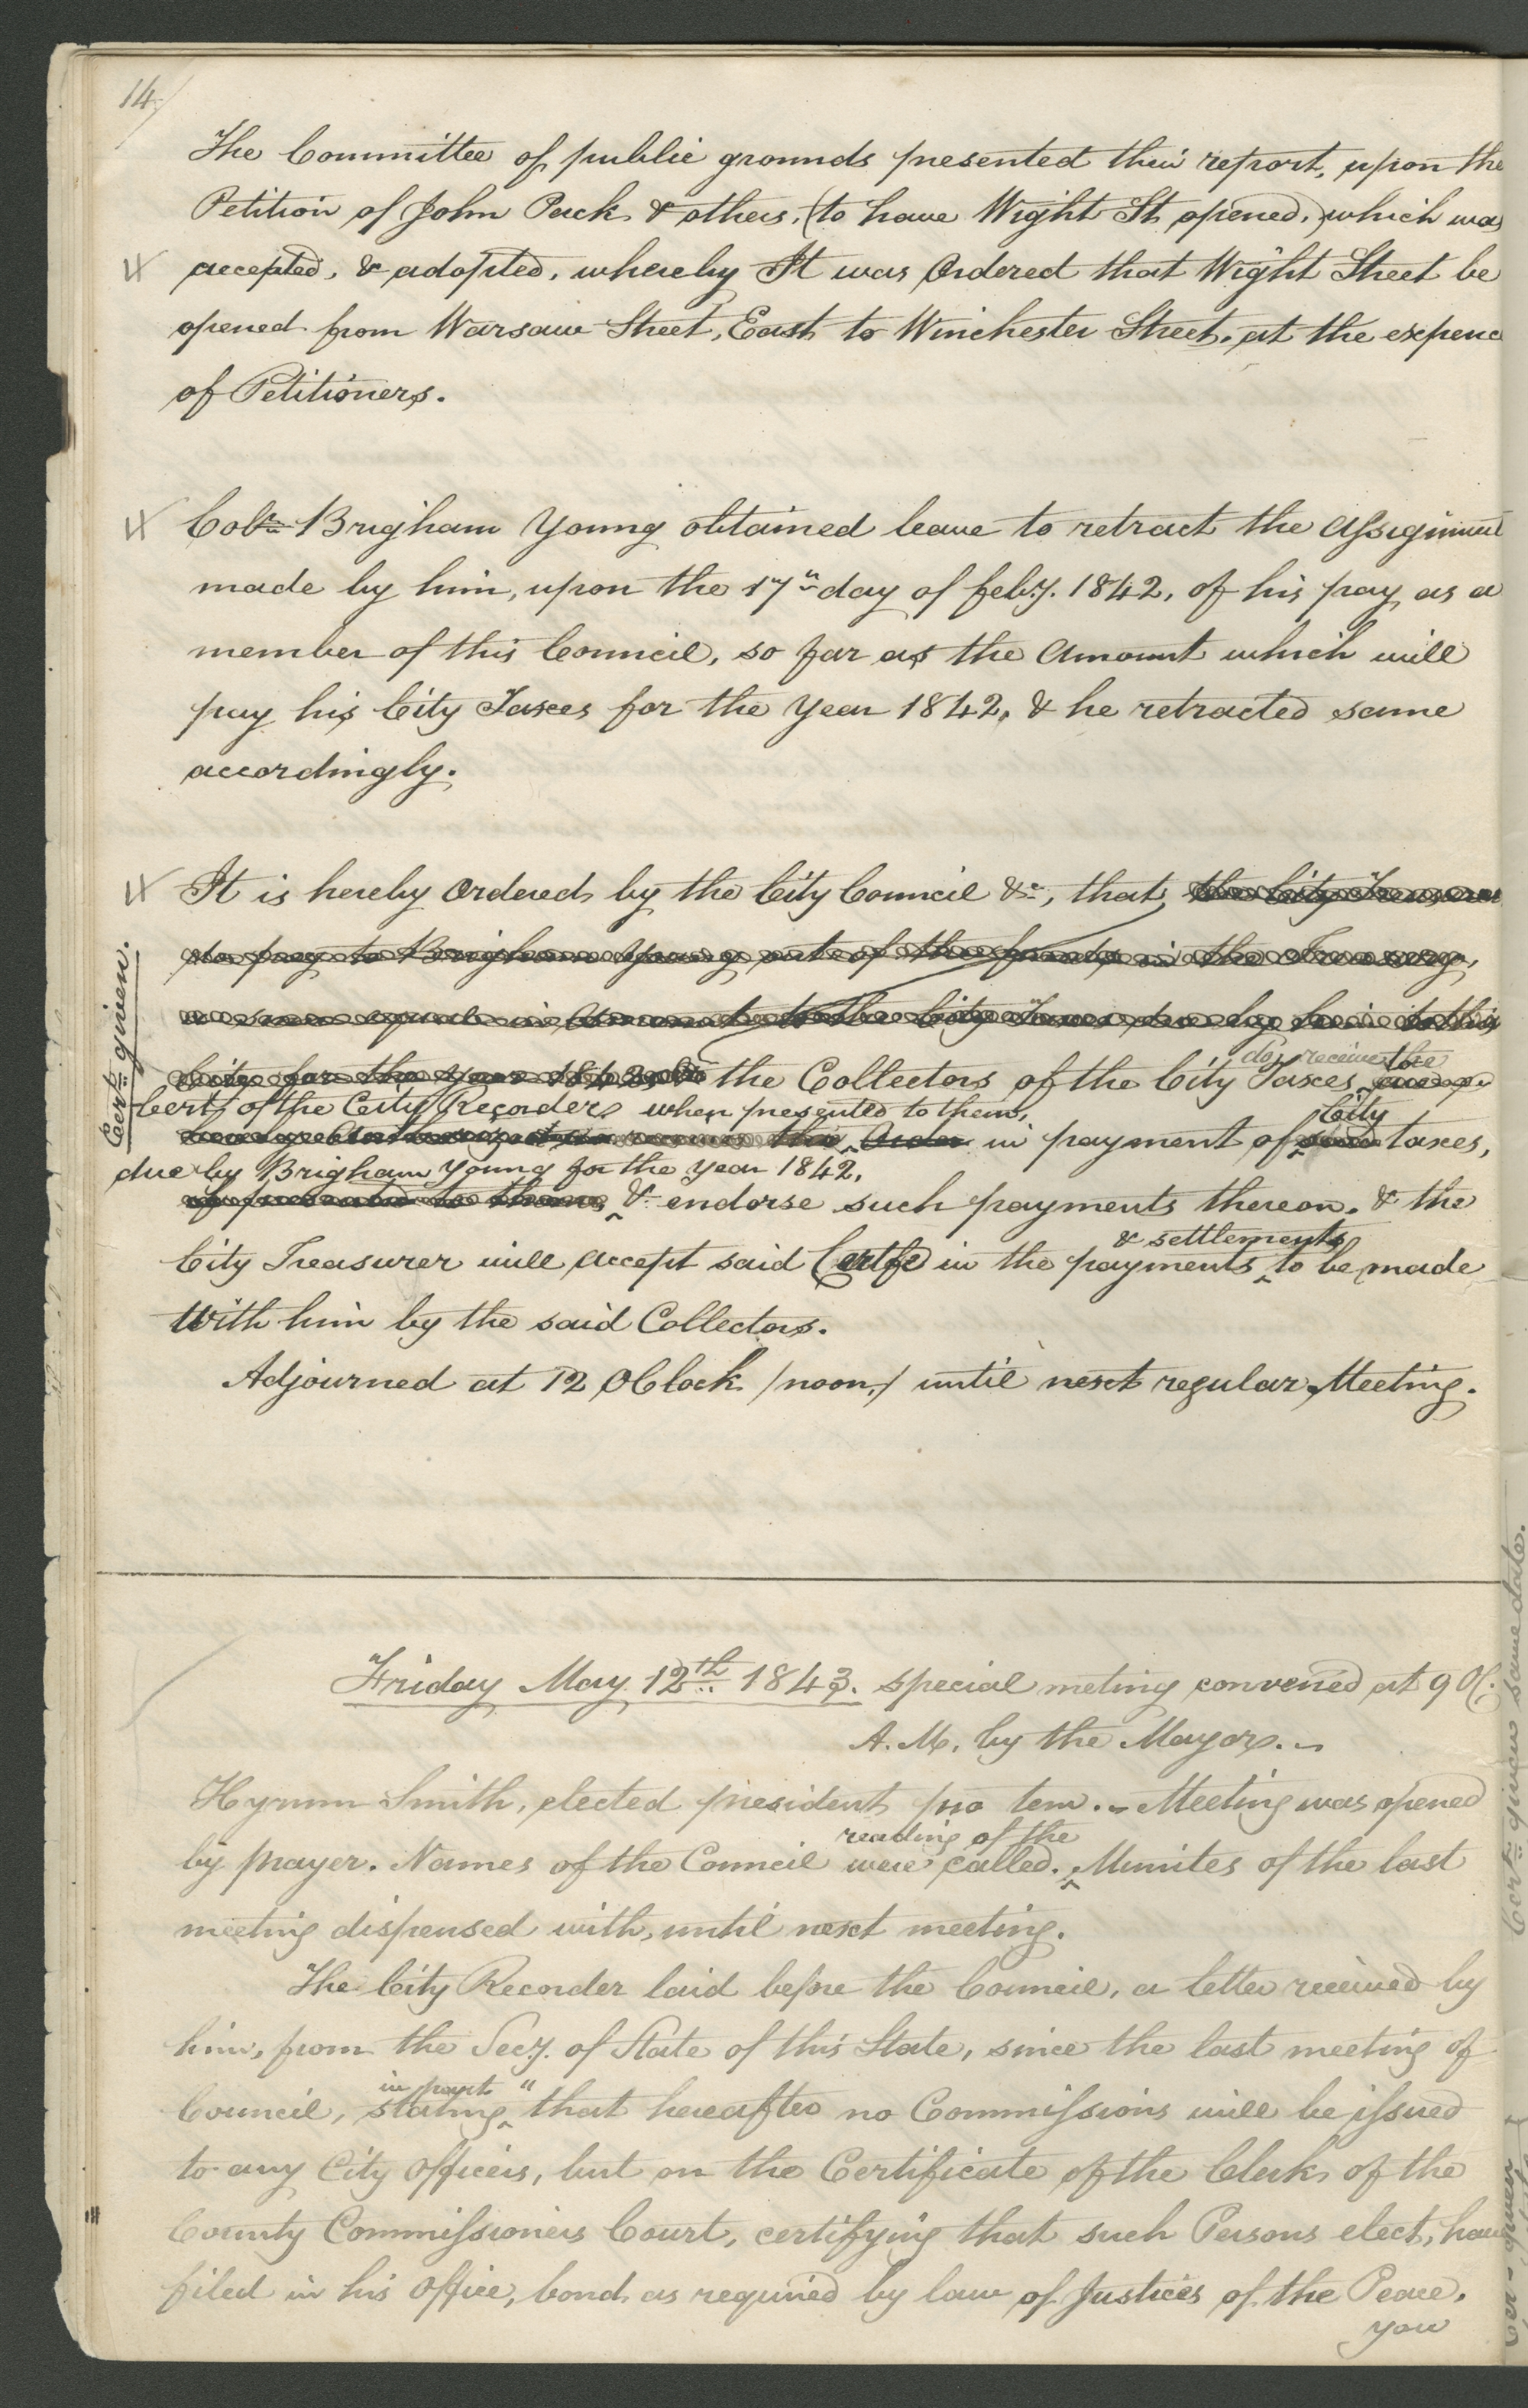 14/
The Committee of public grounds presented their report, upon the
Petition of John Pack & others, (to have Wight St. opened,) which was
accepted, & adopted, whereby It was Ordered that Wight Street be
opened from Warsaw Street, East to Winchester Street, at the expence
of Petitioners.
Colr. Brigham Young obtained leave to retract the Assignment
made by him, upon the 17th day of feby. 1842, of his pay as a
member of this Council, so far as the Amount which will
pay his City Taxes for the year 1842, & he retracted same
accordingly.
Cert: given.
It is hereby Ordered by the City Council &c, that, the City Treasurer
to pay to Brigham Young out of the funds in the Treasury,
a sum equal in Amount to the City Taxes due by him to this
City for the year 1842, the Collectors of the City Taxes
do, receive the
Certs of the City Recorder, when presented to them,
this Order in payment of said taxes,
City
due by Brigham Young for the year 1842,
if presented to them, & endorse such payments thereon. & the
& settlements
City Treasurer will accept said Certfe in the payments to be made
With him by the said Collectors.
Adjourned at 12 OClock /noon,/ until next regular Meeting.
Friday May 12th 1843. special meting convened at 9 OC.
A.M. by the Mayor.
Hyrum Smith, elected president pro tem. Meeting was opened
reading of the
by prayer. Names of the Council were called. Minutes of the last
meeting dispensed with, until next meeting.
The City Recorder laid before the Council, a letter received by
him, from the Secy. of State of this State, since the last meeting of
in part "
Council, stating that hereafter no Commissions will be issued
to any City Officers, but on the Certificate of the Clerk of the
County Commissioners Court, certifying that such Persons elect, have
filed in his Office, bond as required by law of Justices of the Peace.
you
Cert: given same date.